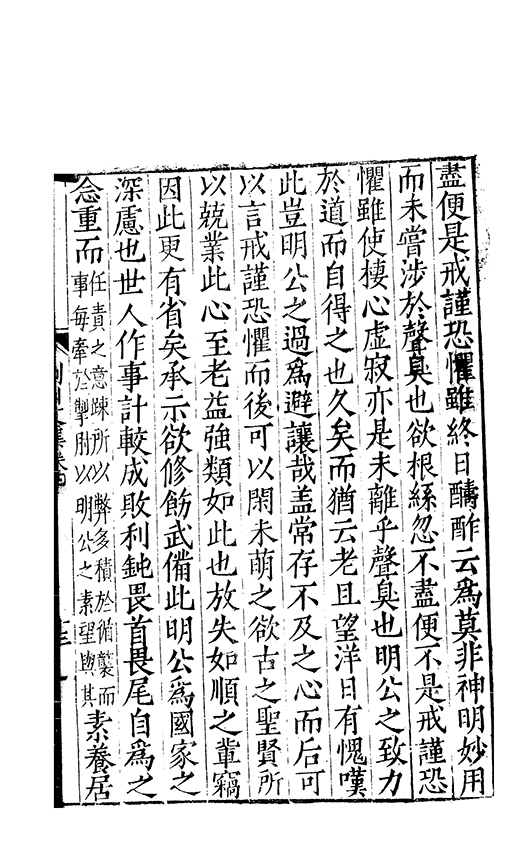 盡便是戒謹恐懼雖終日醻酢云爲莫非神明妙用
而未嘗涉於聲臭也欲根絲忽不盡便不是戒謹恐
懼雖使棲心虛寂亦是未離乎聲臭也明公之致力
於道而自得之也久矣而猶云老且望洋日有愧嘆
此豈明公之過爲避讓哉盖常存不及之心而后可
以言戒謹恐懼而後可以閑未萌之欲古之聖賢所
以兢業此心至老益強類如此也放失如順之輩竊
因此更有省矣承示欲修飭武備此明公爲國家之
深慮也世人作事計較成敗利鈍畏首畏尾自爲之
念重而
任責之意踈所以弊多積於循襲而
事每牽於掣肘以明公之素望與其
素養居